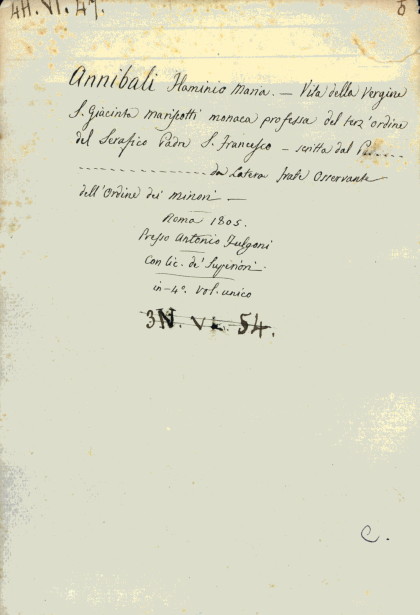 4H. VI. 47.
Annibali Flaminio Maria. — Vita della Vergine
S. Giacinta mariscotti monaca professa del terz'ordine
del Serafico Padre S. Francesco — scritta dal Pad.....
.......................... da Latera frate Osservante
dell'Ordine dei minori —
Roma 1805.
Presso Antonio Fulgoni
Con lic. de' Superiori.
in-4º. vol. unico
3N. VI. 54.
C.